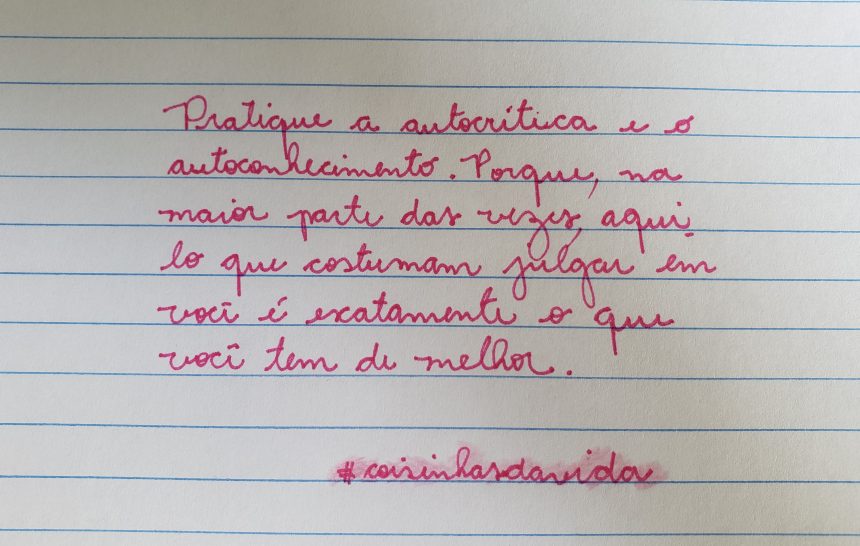 Pratique a autocrítica e o
autoconhecimento. Porque, na
maior parte das vezes, aqui_
lo que costumam julgar em
você é exatamente o que
você tem de melhor.
#coisinhasdavida